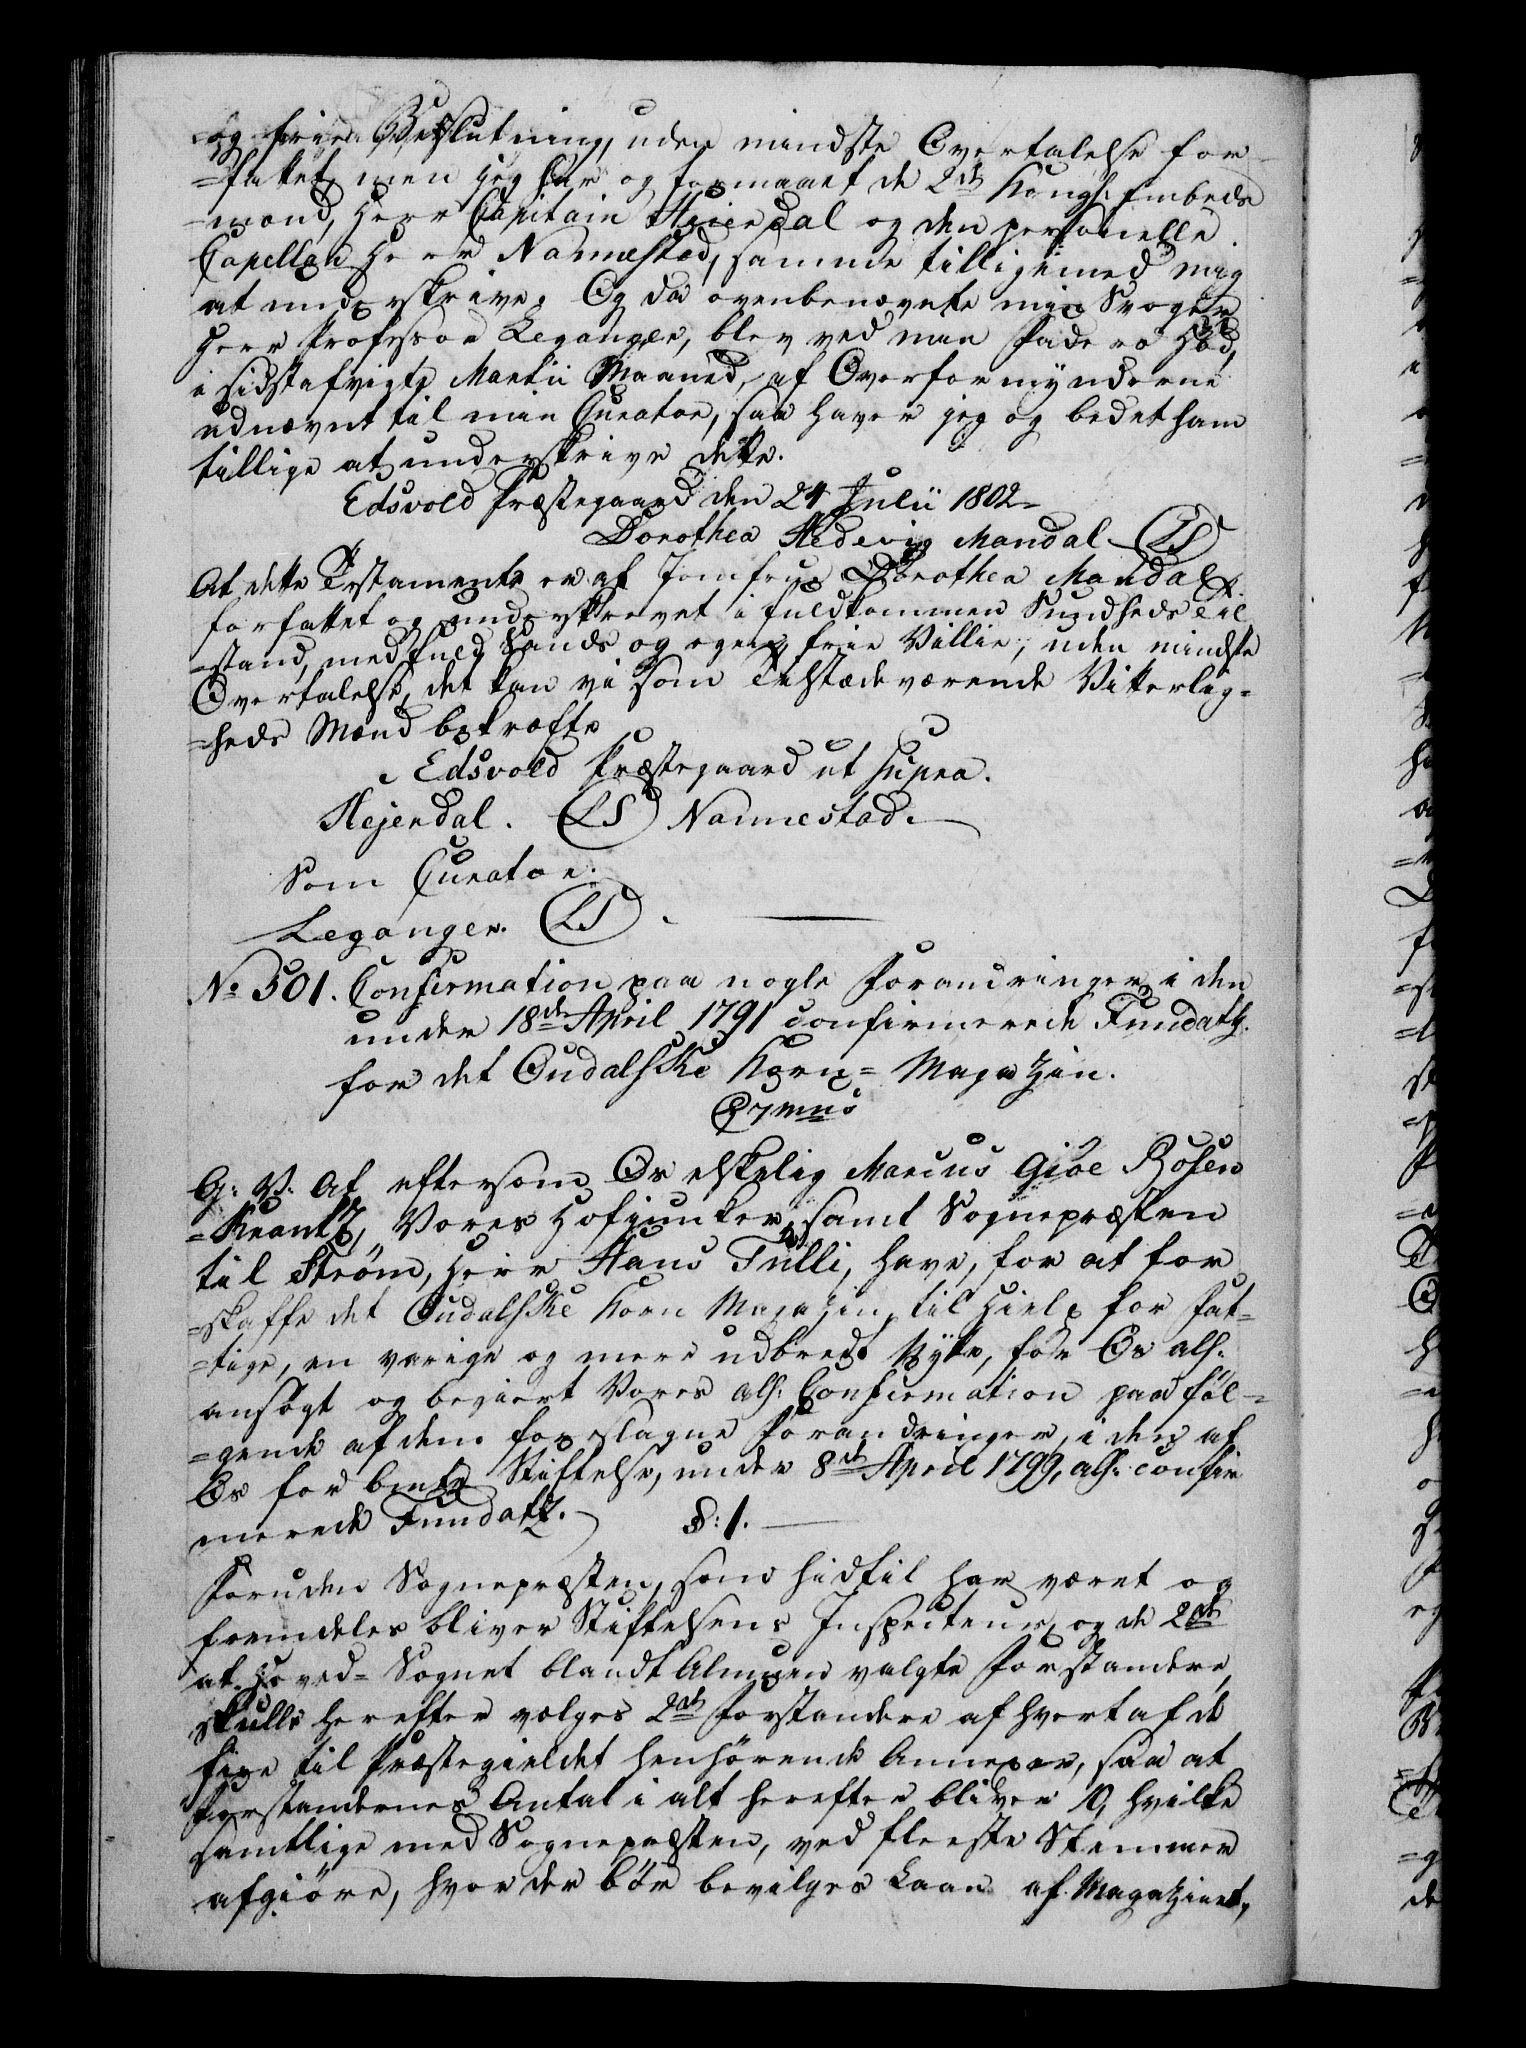 og friee Beslutning, uden mindste Overtalelse for-
=fattet, men jeg har og formaaet de 2de Kongl: Embeds
=mænd, Herr Capitain Heierdal og den personelle
Capellan Herr Nannestad, samme tilligemed mig
at underskrive. Og da ovenbenævnte min Svoger
Herr Professor Leganger, blev ved min Faders Død,
i sidstafvigte Martii Maaned, af Overformynderne
udnævnt til min Curator, saa haver jeg og bedet ham
tillige at underskrive dette.
Edsvold Præstegaard den 24 Julii 1802
Dorothea Hedevig Mandal (LS)
At dette Testamente er af Jomfrue Dorothea Mandal
forfattet og underskrevet i fuldkommen Sundheds Til
=stand, med fuld Sands og egen frie Villie, uden mindste
Overtalelse, det kan vi som Tilstædeværende Vitterlig=
=heds Mænd bekræfte
Edsvold Præstegaard ut supra.
Hejerdal. (LS) Nannestad.
Som Curator.
Leganger. (LS)
No 501. Confirmation paa nogle Forandringer i den
under 18de April 1791 confirmerede Fundatz
for det Oudalske Korn= Magazin.
G: V: At eftersom Os elskelig Marcus Giøe Rosen
=Krantz, Vores Hofjunker, samt Sognepræsten
til Strøm, Herr Hans Tulli, have, for at for
=skaffe det Oudalske Korn Magazin, til Hielp for Fat=
=tige, en varige og mere udbredt Nytte, for Os all:
ansøgt og begiert Vores all: Confirmation paa føl=
=gende af dem foreslagne Forandringer, i den af
Os for bemte Stiftelse, under 8de April 1799, all: confir
merede Fundatz. §: 1.
Foruden Sognepræsten, som hidtil har været og
fremdeles bliver Stiftelsens Inspecteur, og de 2de
at Hoved= Sognet blandt Almuen valgte Forstandere,
skulle herefter vælges 2de Forstandere af hvert af de
fire til Præstegieldet henhørende Annexer, saa at
Forstandernes Antal i alt herefter bliver 10, hvilke
samtlige med Sognepræsten, ved fleeste Stemmer
afgiøre, hvor der bør bevilges Laan af Magazinet,